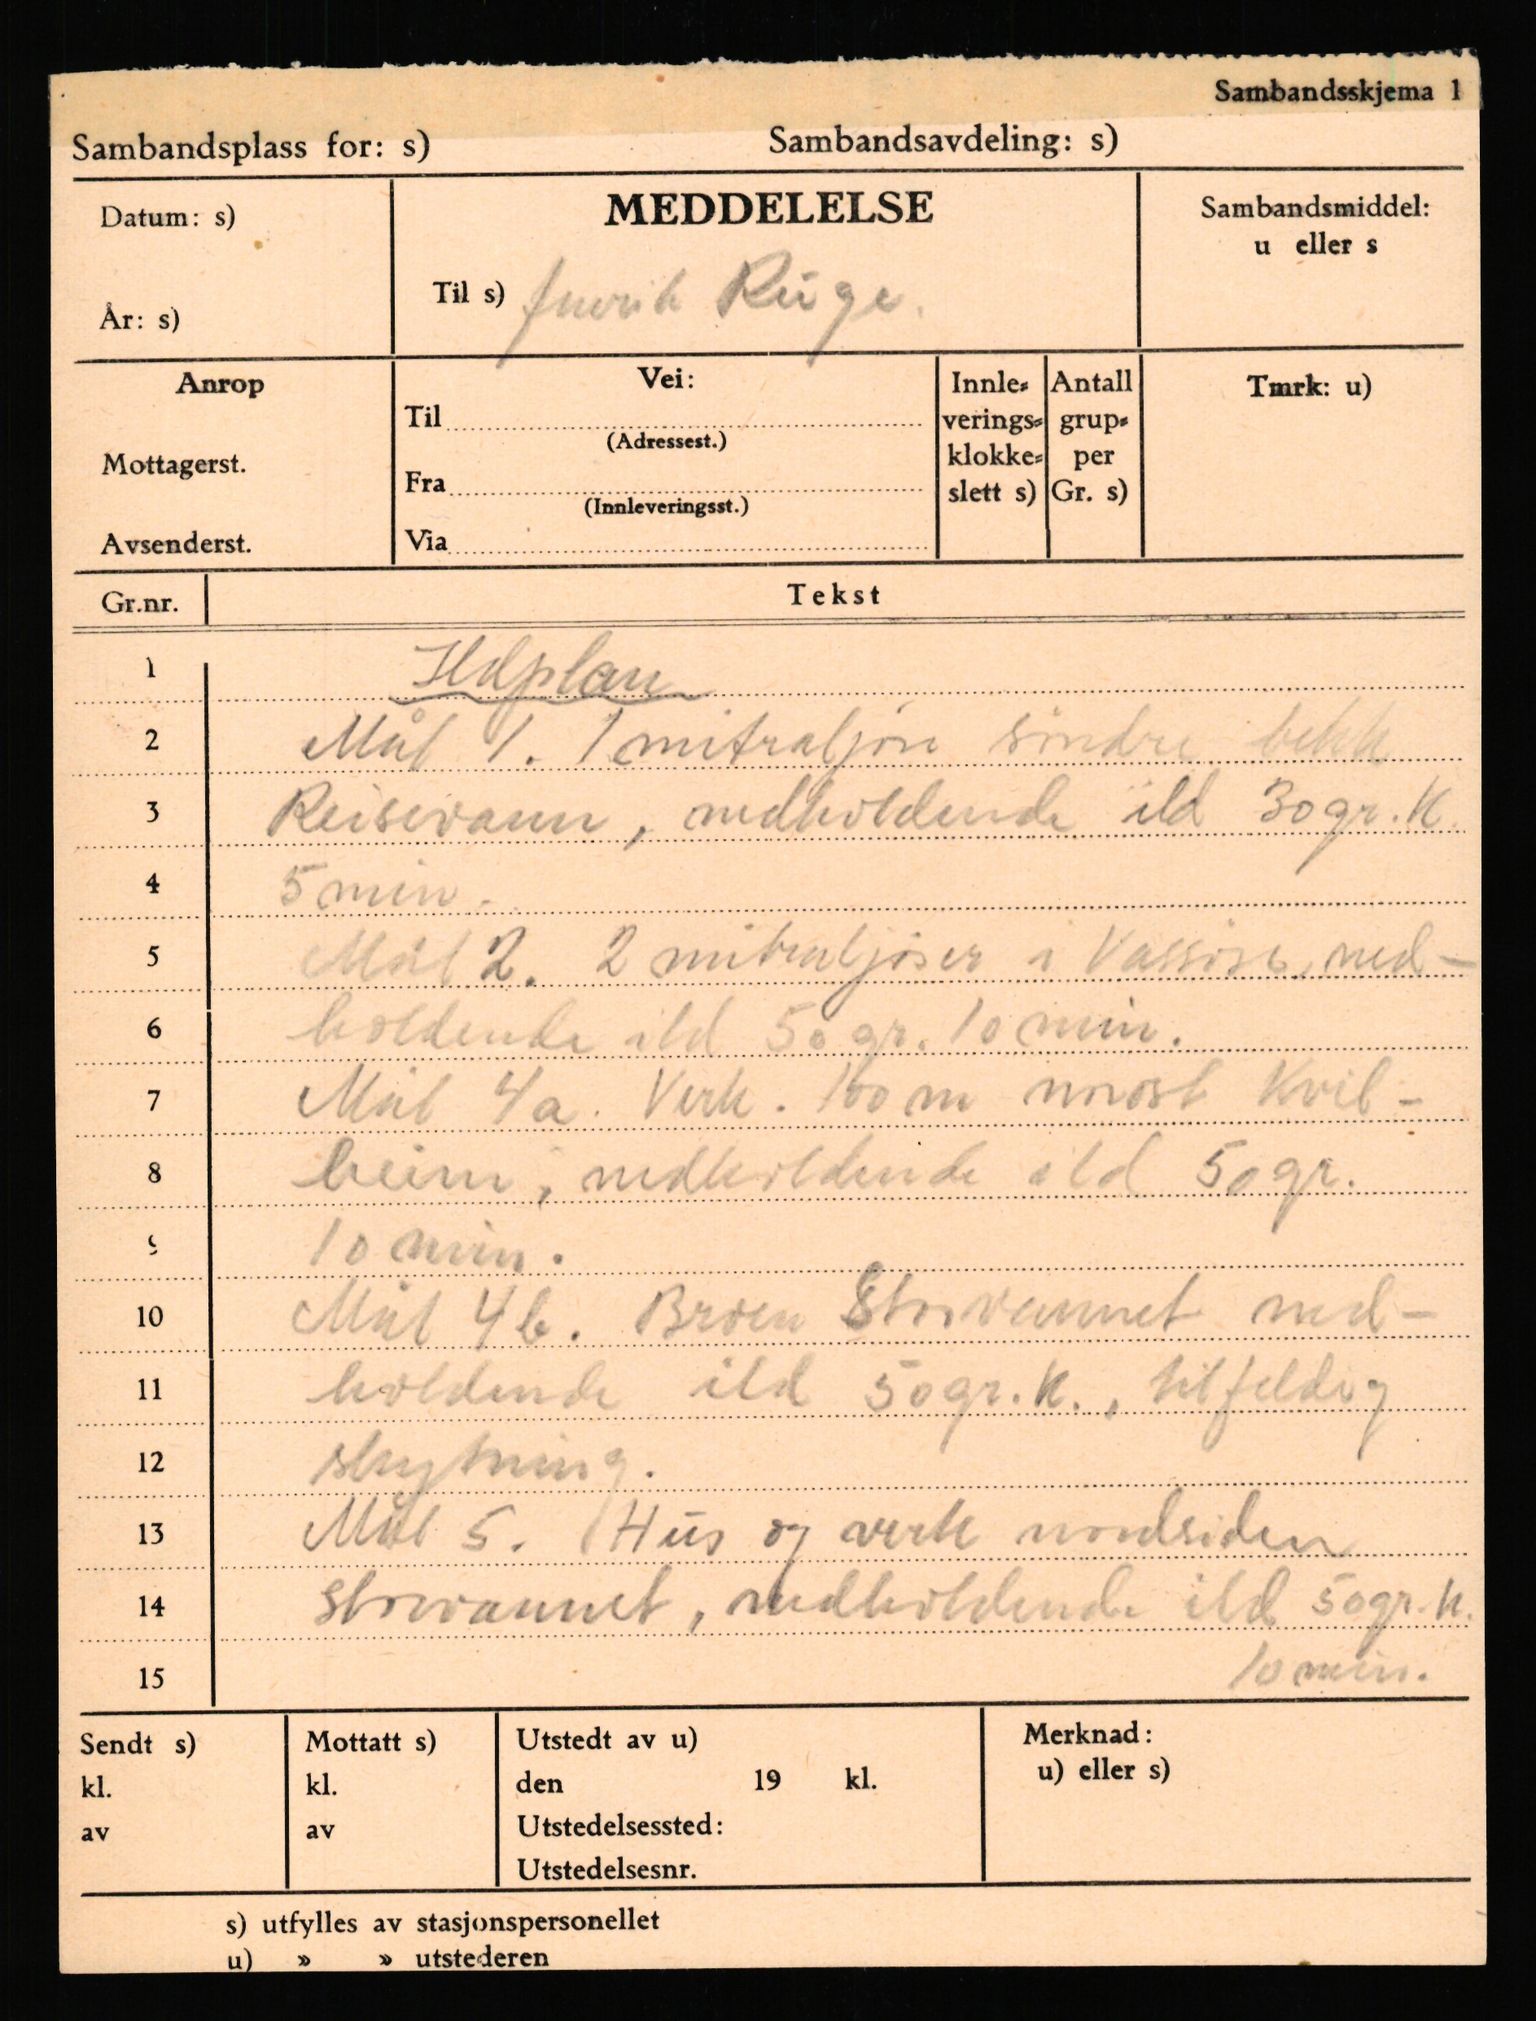 Sambandsskjema 1
Sambandsplass for: s) Sambandsavdeling: s)
Datum: s)
År: s)
MEDDELELSE
Til s) fenrik Ruge.
Sambandsmiddel:
u eller s
Anrop
Mottagerst.
Avsenderst.
Vei:
Til
(Adressest.)
Fra
(Innleveringsst.)
Via
Innle-
verings-
klokke-
slett s)
Antall
grup-
per
Gr. s)
Tmrk: u)
Gr.nr. Tekst
1 Ildplan
2 Mål 1. 1 mitraljøse søndre bekk
3 Reisevann, nedholdende ild 30 gr. K.
4 5 min.
5 Mål 2. 2 mitraljøser i Vassøse, ned-
6 holdende ild 50 gr. 10 min.
7 Mål 4a. Verk. 100 m nrost Kvil-
8 heim, nedholdende ild 50 gr.
9 10 min.
10 Mål 4b. Broen Storvannet ned-
11 holdende ild 50 gr. K., tilfeldig
12 skytning.
13 Mål 5. Hus og verk nordsiden
14 Storvannet, nedholdende ild 50 gr. K.
15 10 min.
Sendt s)
kl.
av
Mottatt s)
kl.
av
Utstedt av u)
den 19 kl.
Utstedelsessted:
Utstedelsesnr.
Merknad:
u) eller s)
s) utfylles av stasjonspersonellet
u) » » utstederen